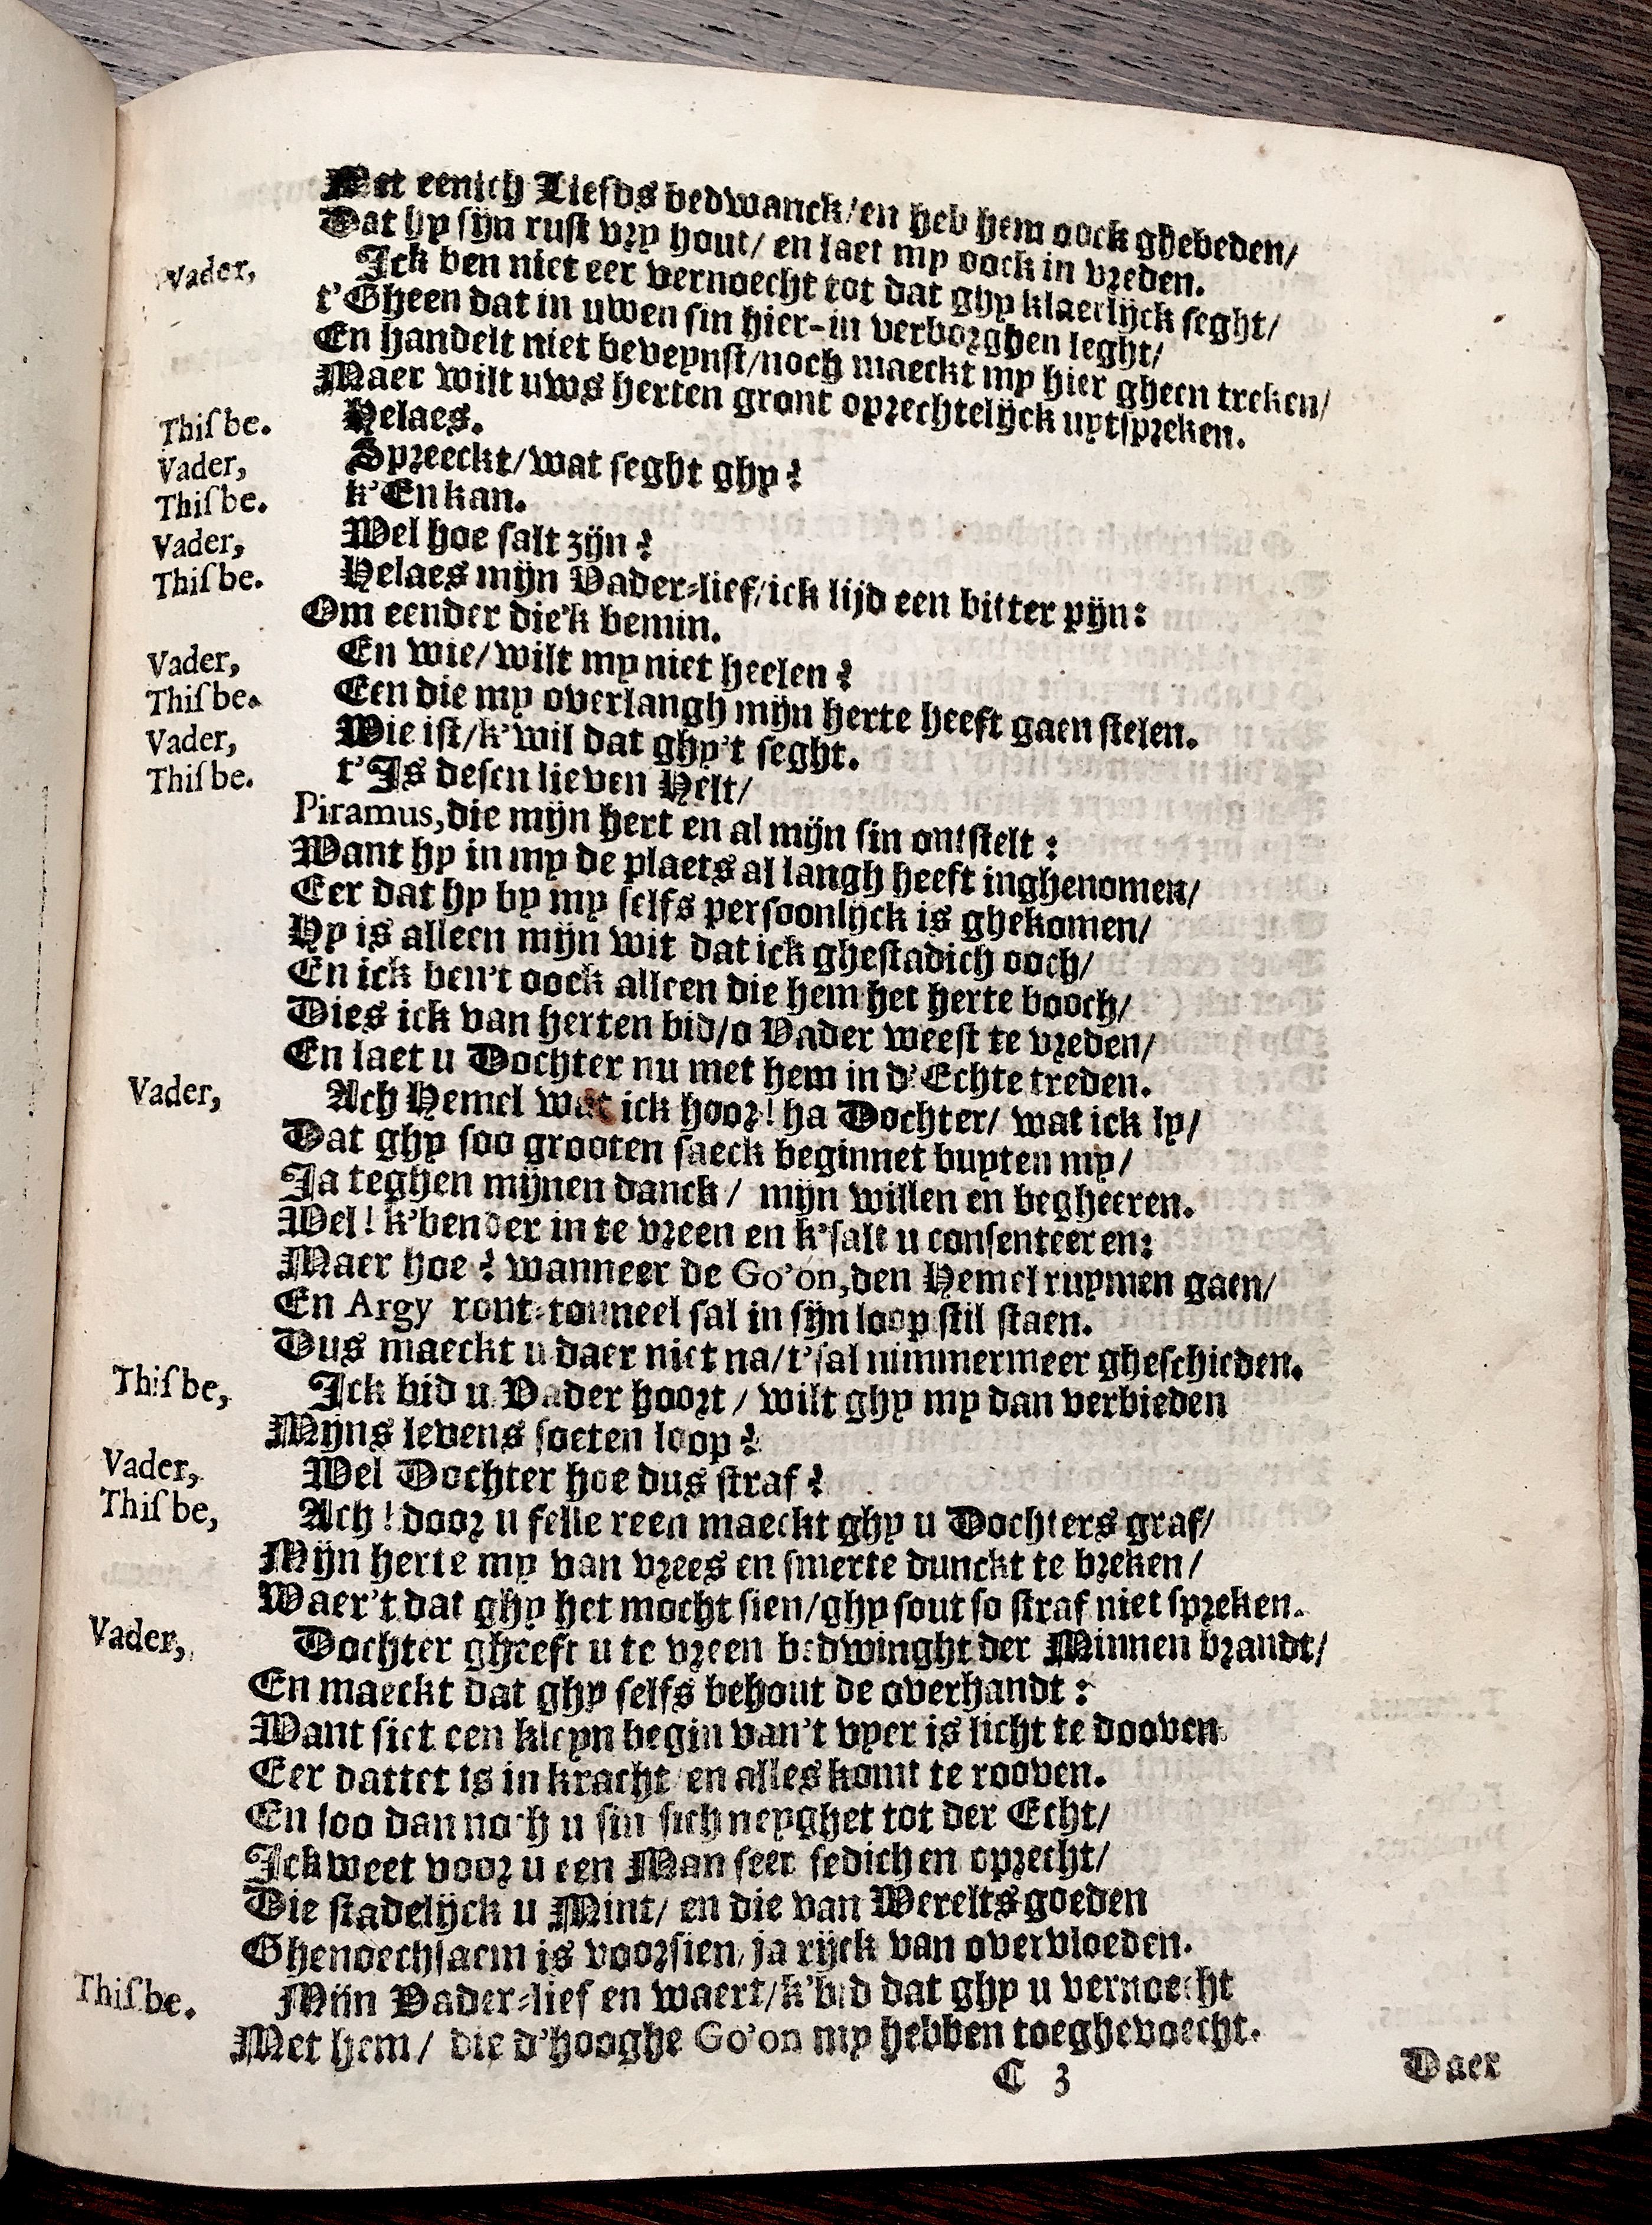 Met eenich Liefds bedwanck/en heb hem oock ghebeden/
Dat hy sijn rust vry hout/ en laet my oock in vreden.
Vader, Ick ben niet eer vernoecht tot dat ghy klaerlijck seght/
t'Gheen dat in uwen sin hier-in verborghen leght/
En handelt niet beveynst/noch maeckt my hier gheen treken/
Maer wilt uws herten gront oprechtelijck uytspreken.
Thisbe. Helaes.
Vader, Spreeckt/wat seght ghy?
Thisbe. k'En kan.
Vader, Wel hoe salt zijn?
Thisbe. Helaes mijn Vader-lief/ick lijd een bitter pijn:
Om eender die'k bemin.
Vader, En wie/wilt my niet heelen?
Thisbe. Een die my overlangh mijn herte heeft gaen stelen.
Vader, Wie ist/k'wil dat ghy't seght.
Thisbe. t'Is desen lieven Helt/
Piramus,die mijn hert en al mijn sin ontstelt:
Want hy in my de plaets al langh heeft inghenomen/
Eer dat hy by my selfs persoonlijck is ghekomen/
Hy is alleen mijn wit dat ick ghestadich ooch/
En ick ben't oock alleen die hem het herte booch/
Dies ick van herten bid/o Vader weest te vreden/
En laet u Dochter nu met hem in d'Echte treden.
Vader, Ach Hemel wat ick hoor! ha Dochter/ wat ick ly/
Dat ghy soo grooten saeck beginnet buyten my/
Ja teghen mijnen danck/ mijn willen en begheeren.
Wel! k'bender in te vreen en k'salt u consenteeren:
Maer hoe? wanneer de Go'on,den Hemel ruymen gaen/
En Argy ront-tonneel sal in sijn loop stil staen.
Dus maeckt u daer niet na/t'sal nimmermeer gheschieden.
Thisbe, Ick bid u Vader hoort/ wilt ghy my dan verbieden
Mijns levens soeten loop?
Vader, Wel Dochter hoe dus straf?
Thisbe, Ach! door u felle reen maeckt ghy u Dochters graf/
Mijn herte my van vrees en smerte dunckt te breken/
Waer't dat ghy het mocht sien/ghy sout so straf niet spreken.
Vader, Dochter gheeft u te vreen bedwinght der Minnen brandt/
En maeckt dat ghy selfs behout de overhandt:
Want siet een kleyn begin van't vyer is licht te dooven
Eer dattet is in kracht en alles komt te rooven.
En soo dan noch u sin sich neyghet tot der Echt/
Ick weet voor u een Man seer sedich en oprecht/
Die stadelijck u Mint/ en die van Werelts goeden
Ghenoechsaem is voorsien, ja rijck van overvloeden.
Thisbe. Mijn Vader-lief en waert/k'bid dat ghy u vernoecht
Met hem/ die d'hooghe Go'on my hebben toeghevoecht.
C 3 Daer